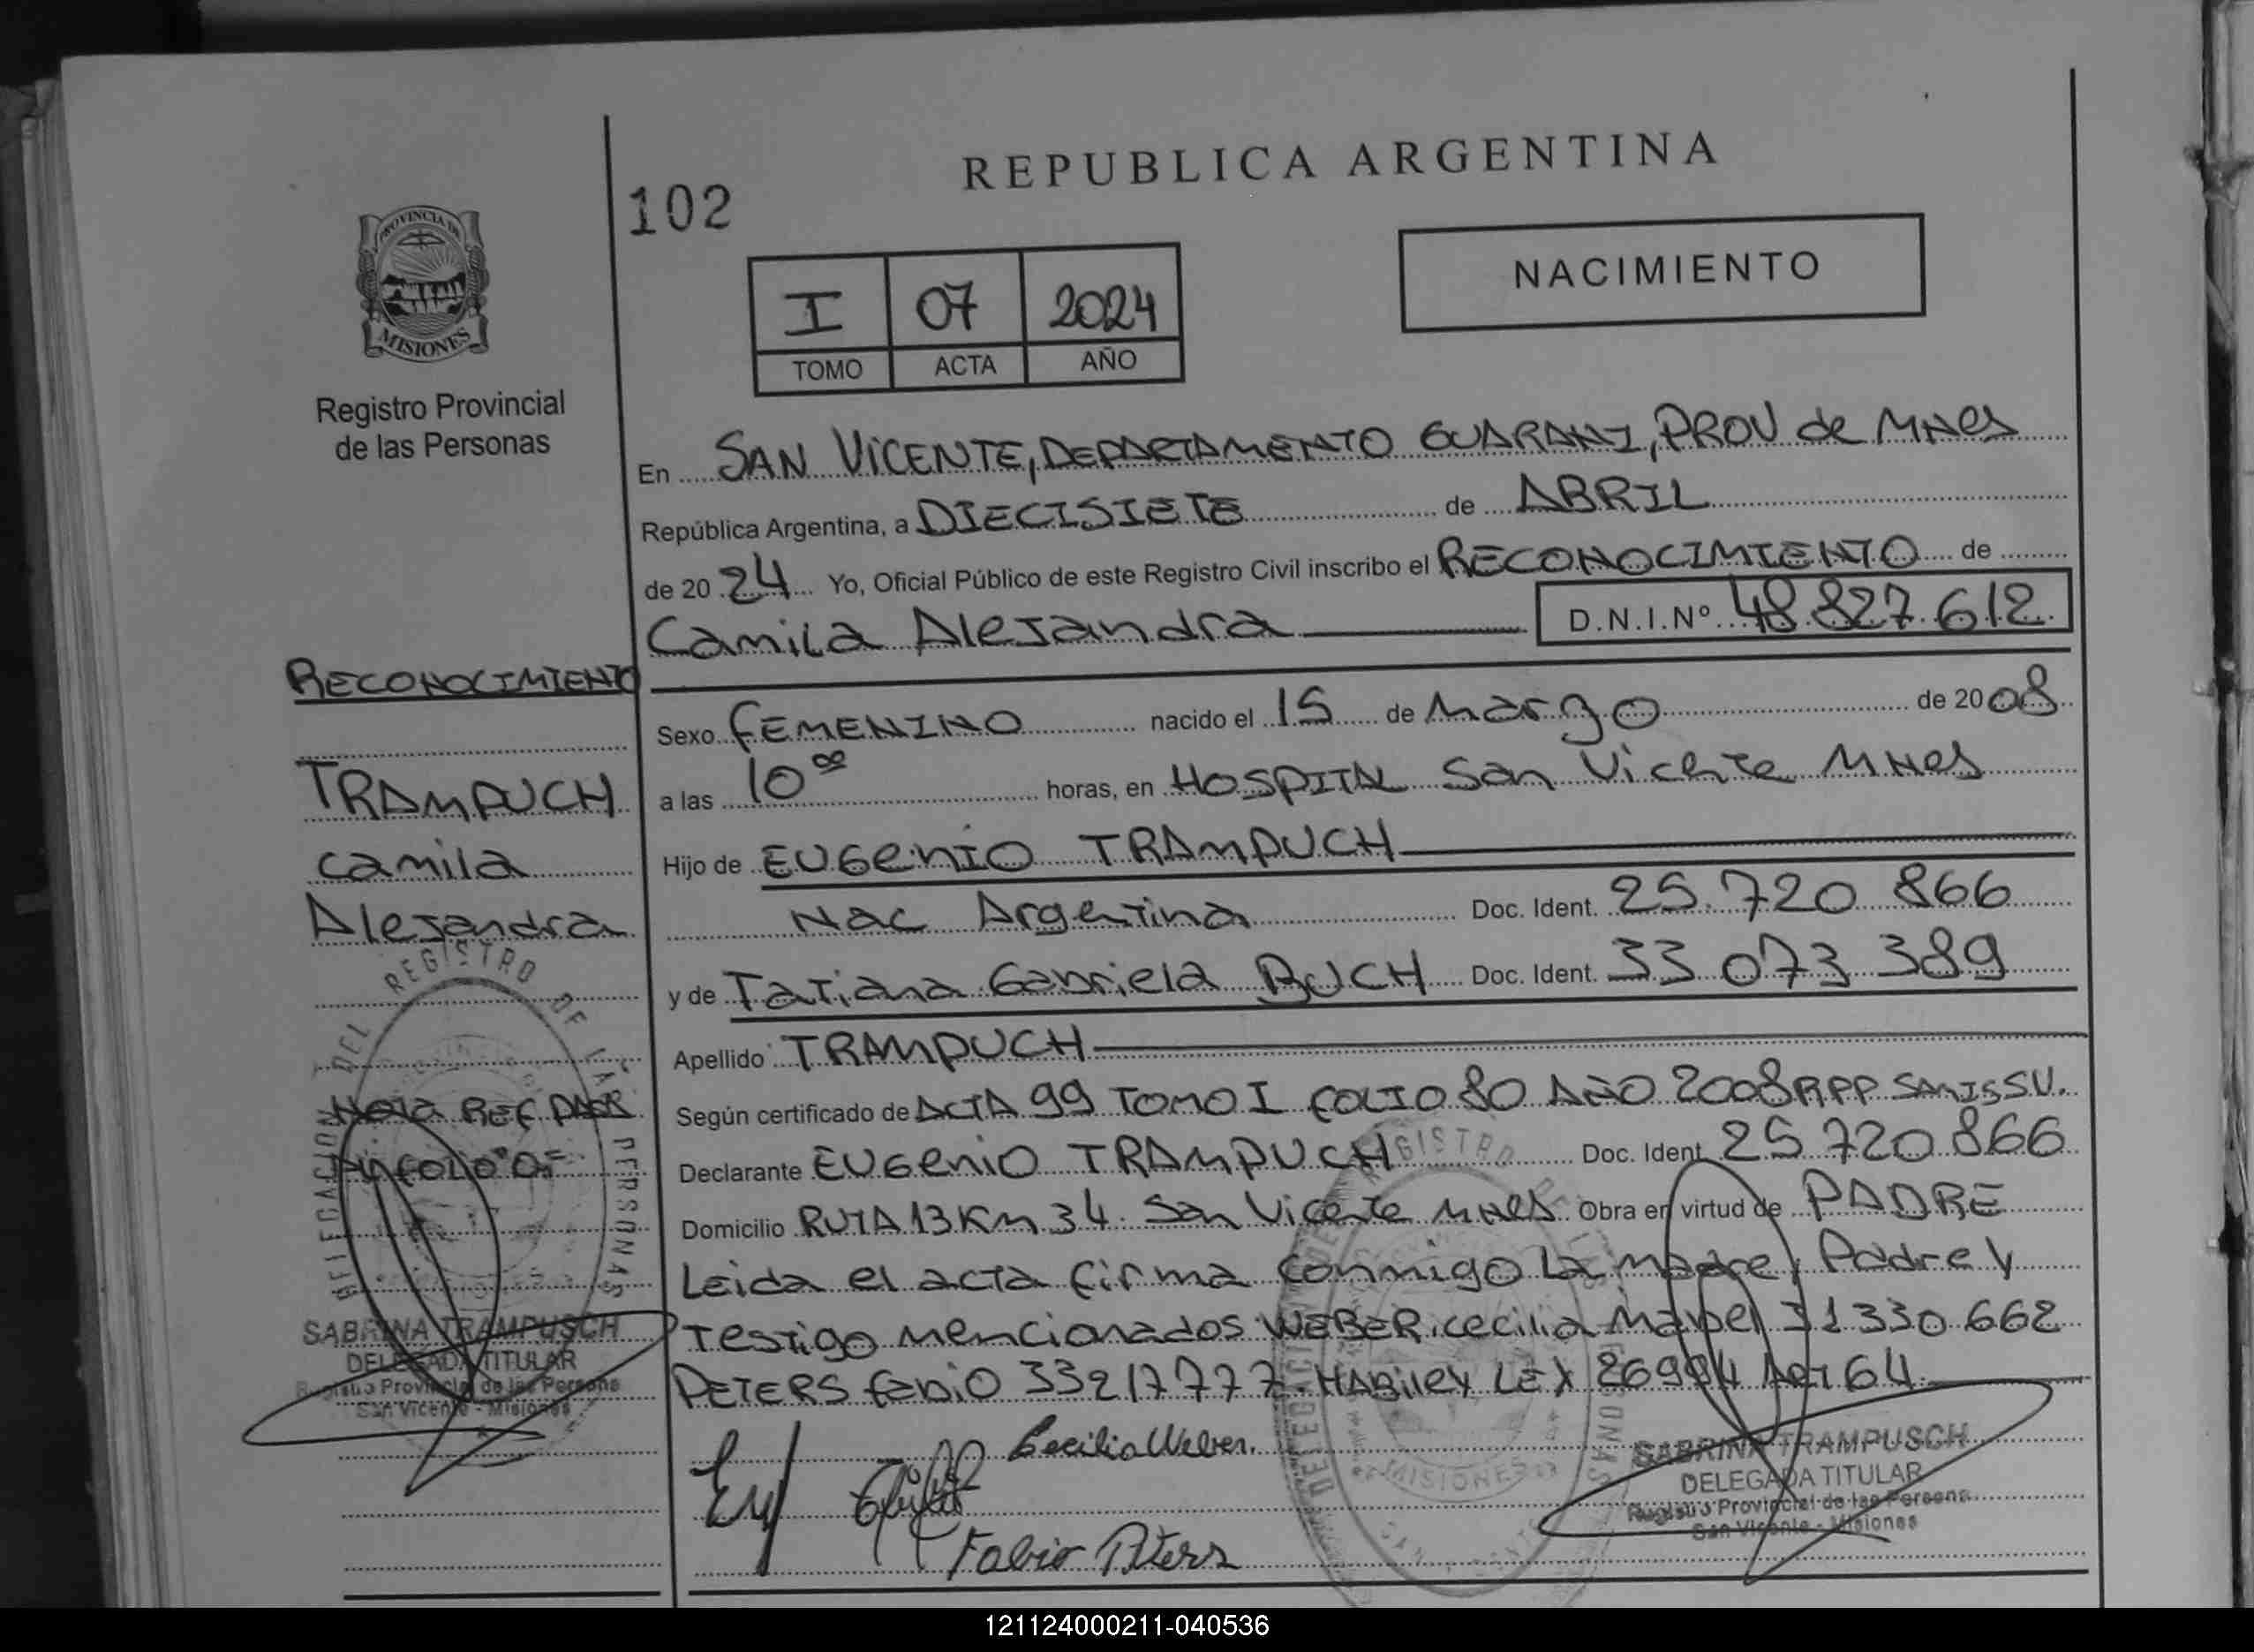 REPUBLICA ARGENTINA
102
PROVINCIA DE
MISIONES
NACIMIENTO
I 07 2024
TOMO ACTA AÑO
Registro Provincial
de las Personas
En SAN VICENTE, DEPARTAMENTO GUARANI, PROV de MNes
República Argentina, a DIECISIETE de ABRIL
de 20 24 Yo, Oficial Público de este Registro Civil inscribo el RECONOCIMIENTO de
Camila Alejandra D.N.I.Nº 48 827 612
RECONOCIMIENTO
Sexo FEMENINO nacido el 15 de Marzo de 20 08
TRAMPUCH
a las 10 00 horas, en HOSPITAL San Vicente MNes
camila
Hijo de EUGENIO TRAMPUCH
Alejandra
Nac Argentina Doc. Ident. 25.720 866
y de Tatiana Gabriela BUCH Doc. Ident. 33 073 389
Apellido TRAMPUCH
Nota REF
Según certificado de ACTA 99 TOMO I FOLIO 80 AÑO 2008 RPP
Declarante EUGENIO TRAMPUCH Doc. Ident. 25 720 866
Domicilio RUTA 13 Km 34 San Vicente MNes Obra en virtud de PADRE
Leida el acta firma conmigo La madre, Padre y
Testigo mencionados WEBER cecilia Mabel 31 330 662
PETERS Fabio 33217777 LEX 26994 Art 64
Cecilia Weber.
Fabio Peters
REGISTRO DE LAS PERSONAS
SABRINA TRAMPUSCH
DELEGADA TITULAR
Registro Provincial de las Persona
San Vicente - Misiones
MISIONES
SABRINA TRAMPUSCH
DELEGADA TITULAR
Registro Provincial de las Persona
San Vicente - Misiones
121124000211-040536